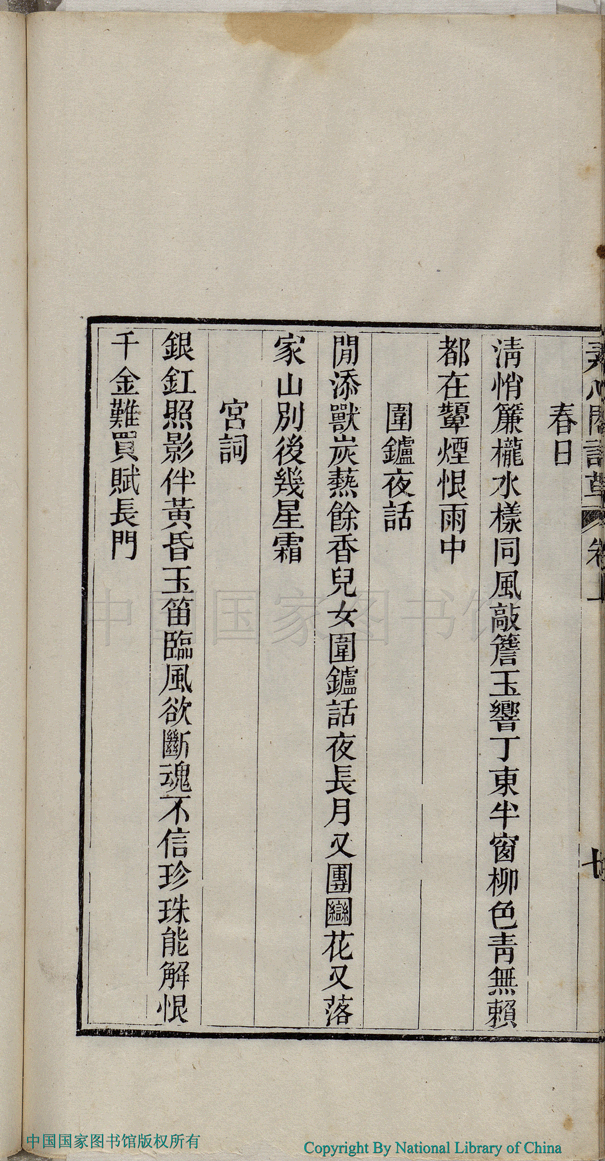 春日
清悄簾櫳水樣同風敲簷玉響丁東半窗柳色青無賴
都在顰煙恨雨中
圍鑪夜話
閒添獸炭爇餘香兒女圍鑪話夜長月又團圞花又落
家山別後幾星霜
宮詞
銀釭照影伴黃昏玉笛臨風欲斷魂不信珍珠能解恨
千金難買賦長門
中国国家图书馆
中国国家图书馆版权所有
Copyright By National Library of China